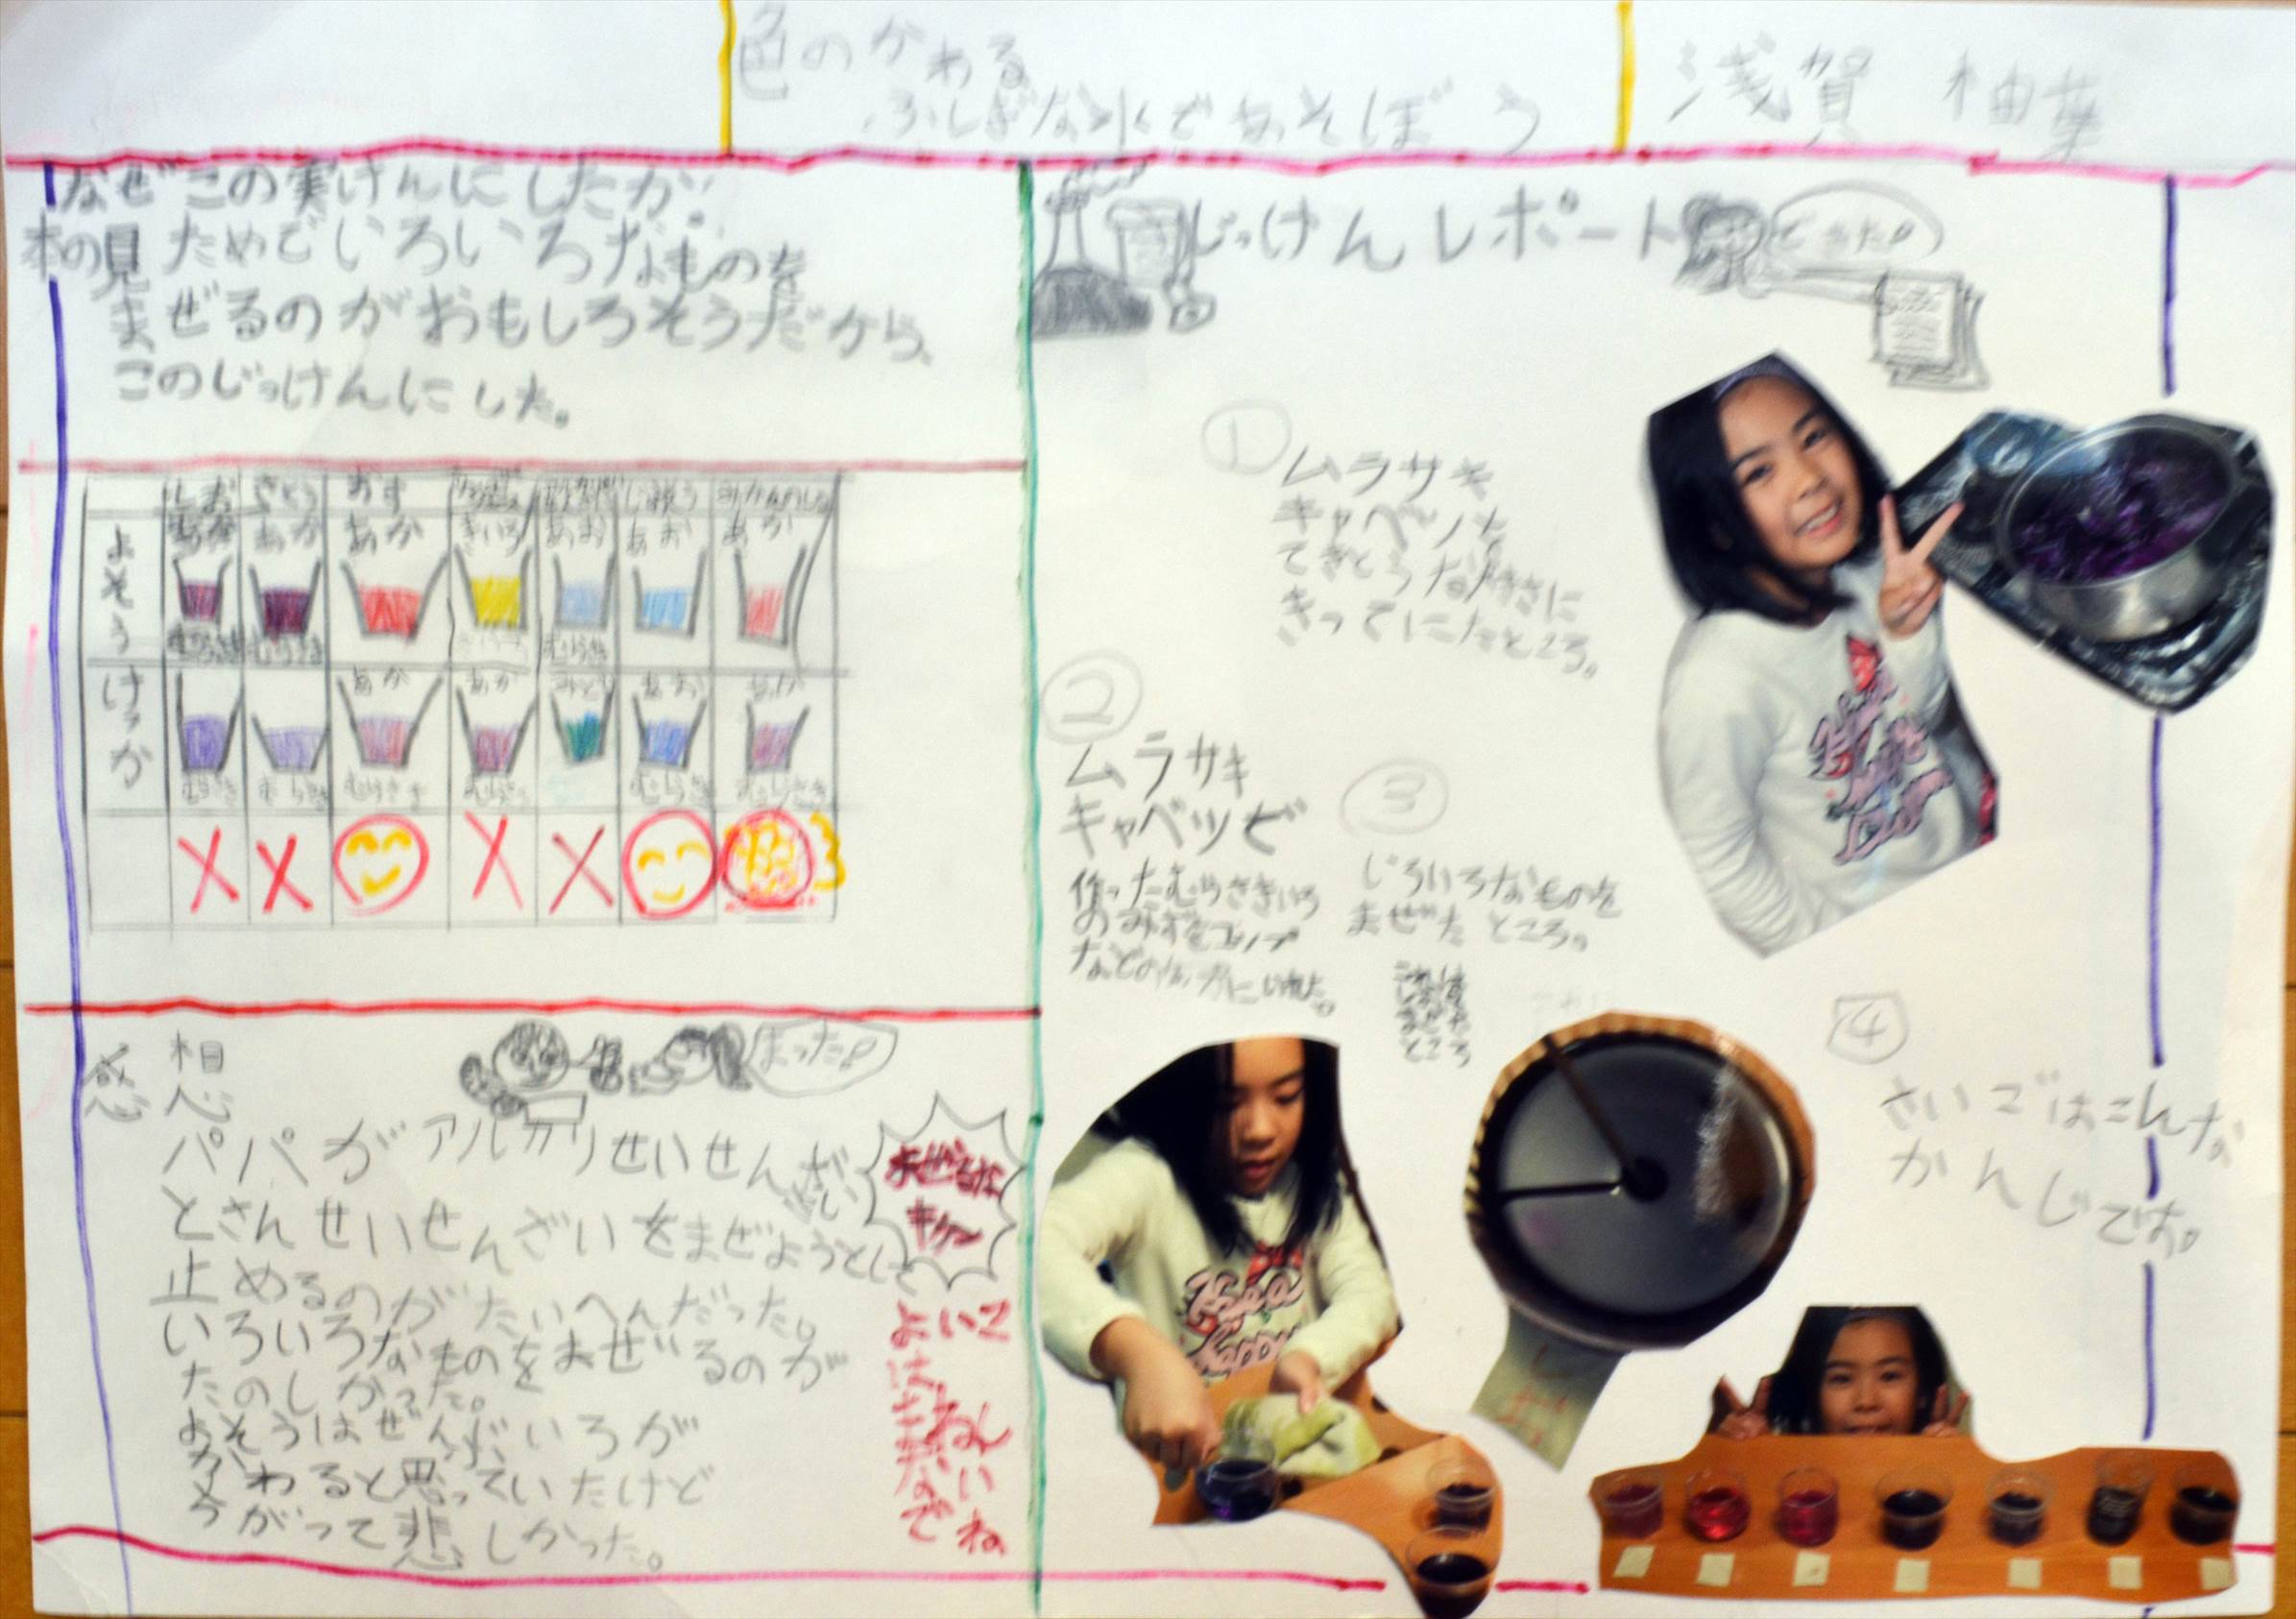 色のかわる
ふしぎな水であそぼう
浅賀 柚葉
なぜこの実けんにしたか?
本の見ためでいろいろなものを
まぜるのがおもしろそうだから、
このじっけんにした。
しお さとう おす じゅうそう
よそう
あか あか あか きいろ あお あお あか
むらさき むらさき むらさき
けっか
あか あか みどり あお あか
むらさき むらさき むらさき むらさき むらさき むらさき
感想
まった!
パパがアルカリせいせんざい
とさんせいせんざいをまぜようとして
止めるのがたいへんだった。
いろいろなものをまぜるのが
たのしかった。
よそうはぜんぶいろが
かわると思っていたけど
ちがって悲しかった。
まぜるな
キケン
よいこ
は
でね
じっけんレポート
できた!
①
ムラサキ
キャベツを
てきとうな大きさに
きってにたところ。
②
ムラサキ
キャベツで
作ったむらさきいろ
のみずをコップ
などのなかにいれた。
③
いろいろなものを
まぜた ところ。
これは
ところ
④
さいごはこんな
かんじです。